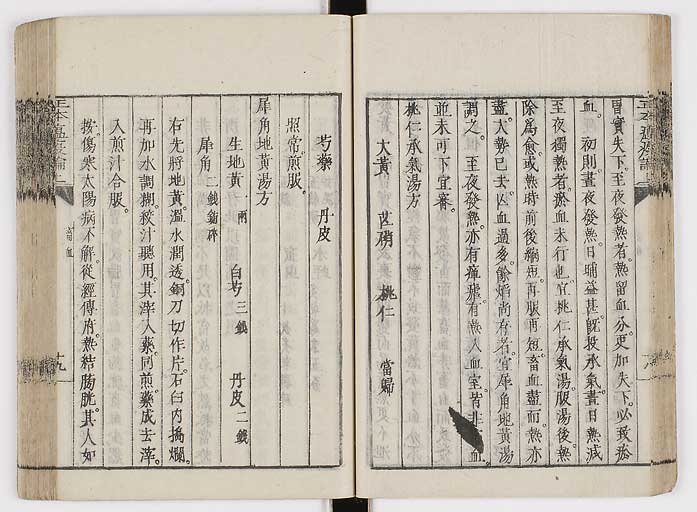 胃實失下。至夜發熱者。熱留血分。更加失下。必致瘀
血。初則晝夜發熱。日晡益甚。旣投承氣。晝日熱減
至夜獨熱者。瘀血未行也。宜桃仁承氣湯。服湯後熱
除爲愈。或熱時前後縮短。再服再短。畜血盡而熱亦
盡。大勢已去。亡血過多。餘焰尚存者。宜犀角地黄湯
調之。至夜發熱。亦有癉瘧。有熱入血室。皆非 血。
並未可下。宜審。
桃仁承氣湯方
大黄 芒硝 桃仁 當歸
芍藥 丹皮
照常煎服。
犀角地黄湯方
生地黄 一兩 白芍 三錢 丹皮 二錢
犀角 二錢鎊碎
右先將地黄。溫水潤透。銅刀切作片。石臼內搗爛。
再加水調糊。絞汁聽用。其滓入藥。同煎。藥成去滓。
入煎汁合服。
按傷寒太陽病不解。從經傳府。熱結膀胱。其人如
十九